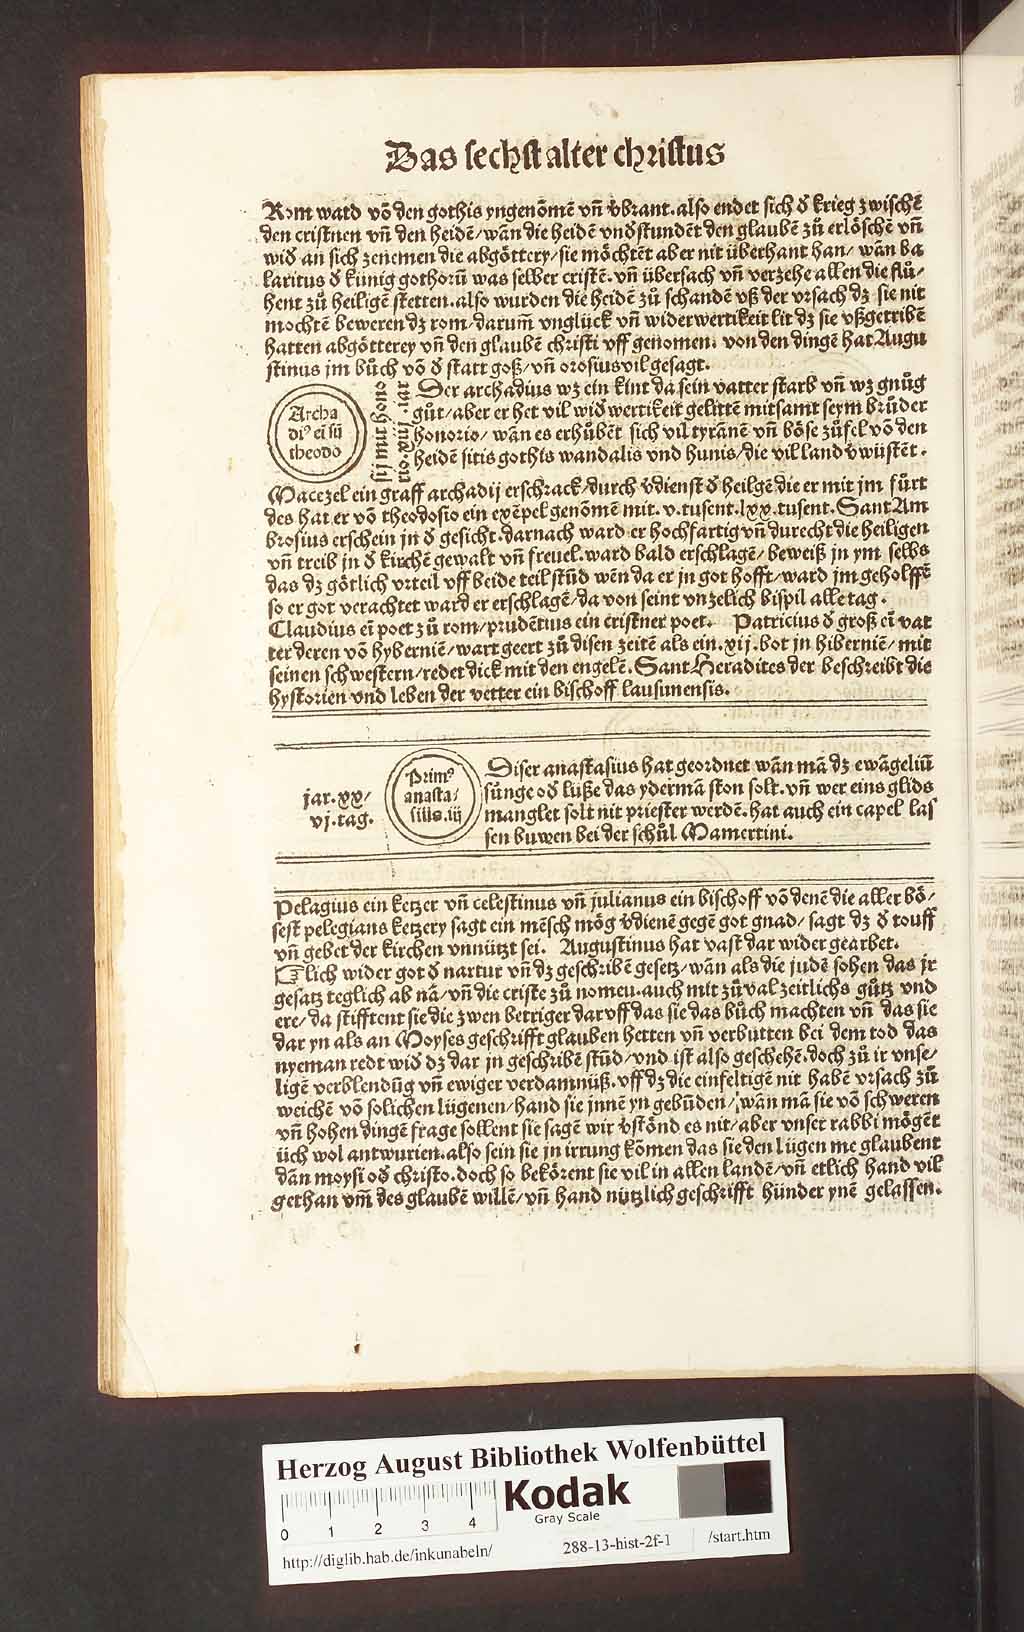 Das sechst alter christus
Rom ward võ den gothis yngenõmẽ vñ v̉brant. also endet sich d̉ krieg zwischẽ
den cristnen vñ den heidẽ/ wãn die heidẽ vnd̉stundẽt den glaubẽ zů erlöschẽ vñ
wid̉ an sich zenemen die abgöttery/ sie möchtẽt aber nit überhant han/ wãn ba
laritus d̉ künig gothorũ was selber cristẽ. vñ übersach vñ verzehe allen die flů/
hent zů heiligẽ stetten. also wurden die heidẽ zů schandẽ vß der vrsach dz sie nit
mochtẽ beweren dz rom/ darum̃ vnglück vñ widerwertikeit lit dz sie vßgetribẽ
hatten abgötterey vñ den glaubẽ christi vff genomen. von den dingẽ hat Augu
stinus jm bůch võ d̉ statt gotz/ vñ orosius vil gesagt.
Archa
di⁹ ei sũ
theodo
sij mit hono
rio. xiij. iar
Der archadius wz ein kint da sein vatter starb vñ wz gnůg
gůt/ aber er het vil wid̉wertikeit gelittẽ mitsamt seym brůder
honorio/ wãn es erhůbẽt sich vil tyrãnẽ vñ böse zůfel võ den
heidẽ sitis gothis wandalis vnd hunis/ die vil land v̉wüstẽt.
Macezel ein graff archadij erschrack/ durch v̉dienst d̉ heilgẽ die er mit jm fůrt
des hat er võ theodosio ein exẽpel genõmẽ mit. v. tusent. lxx. tusent. Sant Am
brosius erschein jn d̉ gesicht. darnach ward er hochfartig vñ durecht die heiligen
vñ treib jn d̉ kirchẽ gewalt vñ freuel. ward bald erschlagẽ/ beweiß jn ym selbs
das dz götlich vrteil vff beide teil stũd wẽn da er jn got hofft/ ward jm geholffẽ
so er got verachtet ward er erschlagẽ/ da von seint vnzelich bispil alle tag.
Claudius eĩ poet zů rom/ prudẽtius ein cristner poet. Patricius d̉ groß eĩ vat
ter deren võ hyberniẽ/ wart geert zů disen zeitẽ als ein. xij. bot in hiberniẽ/ mit
seinen schwestern/ redet dick mit den engelẽ. Sant Heradites der beschreibt die
hystorien vnd leben der vetter ein bischoff lausunensis.
jar. xx/
vj. tag.
Prim⁹
anasta/
sius. iij
Diser anastasius hat geordnet wãn mã dz ewãgeliũ
sünge od̉ läße das ydermã ston solt. vñ wer eins glids
manglet solt nit priester werdẽ. hat auch ein capel las
sen buwen bei der schůl Mamertini.
Pelagius ein ketzer vñ celestinus vñ julianus ein bischoff võ denẽ die aller bö/
sest pelegians ketzery sagt ein mẽsch mög v̉dienẽ gegẽ got gnad/ sagt dz d̉ touff
vñ gebet der kirchen vnnützt sei. Augustinus hat vast dar wider gearbet.
lich wider got d̉ nartur vñ dz geschribẽ gesetz/ wãn als die judẽ sohen das jr
gesatz teglich ab nã/ vñ die cristẽ zů nomen. auch mit zůval zeitlichs gůtz vnd
ere/ da stifftent sie die zwen betriger dar vff das sie das bůch machten vñ das sie
dar yn als an Moyses geschrifft glauben hetten vñ verbutten bei dem tod das
nyeman redt wid̉ dz dar jn geschribẽ stũd/ vnd ist also geschehẽ. doch zů ir vnse/
ligẽ verblendũg vñ ewiger verdamnüß. vff dz die einfeltigẽ nit habẽ vrsach zů
weichẽ võ solichen lügenen/ hand sie jnnẽ yn gebũden/ wãn mã sie võ schweren
vñ hohen dingẽ frage sollent sie sagẽ wir v̉stönd es nit/ aber vnser rabbi mögẽt
üch wol antwurten. also sein sie jn irrung kõmen das sie den lügen me glaubent
dãn moysi od̉ christo. doch so bekõrent sie vil in allen landẽ/ vñ etlich hand vil
gethan vm̃ des glaubẽ willẽ/ vñ hand nützlich geschrifft hünder ynẽ gelassen.
Herzog August Bibliothek Wolfenbüttel
0 1 2 3 4
Kodak
Gray Scale
http://diglib.hab.de/inkunabeln/
288-13-hist-2f-1
/start.htm